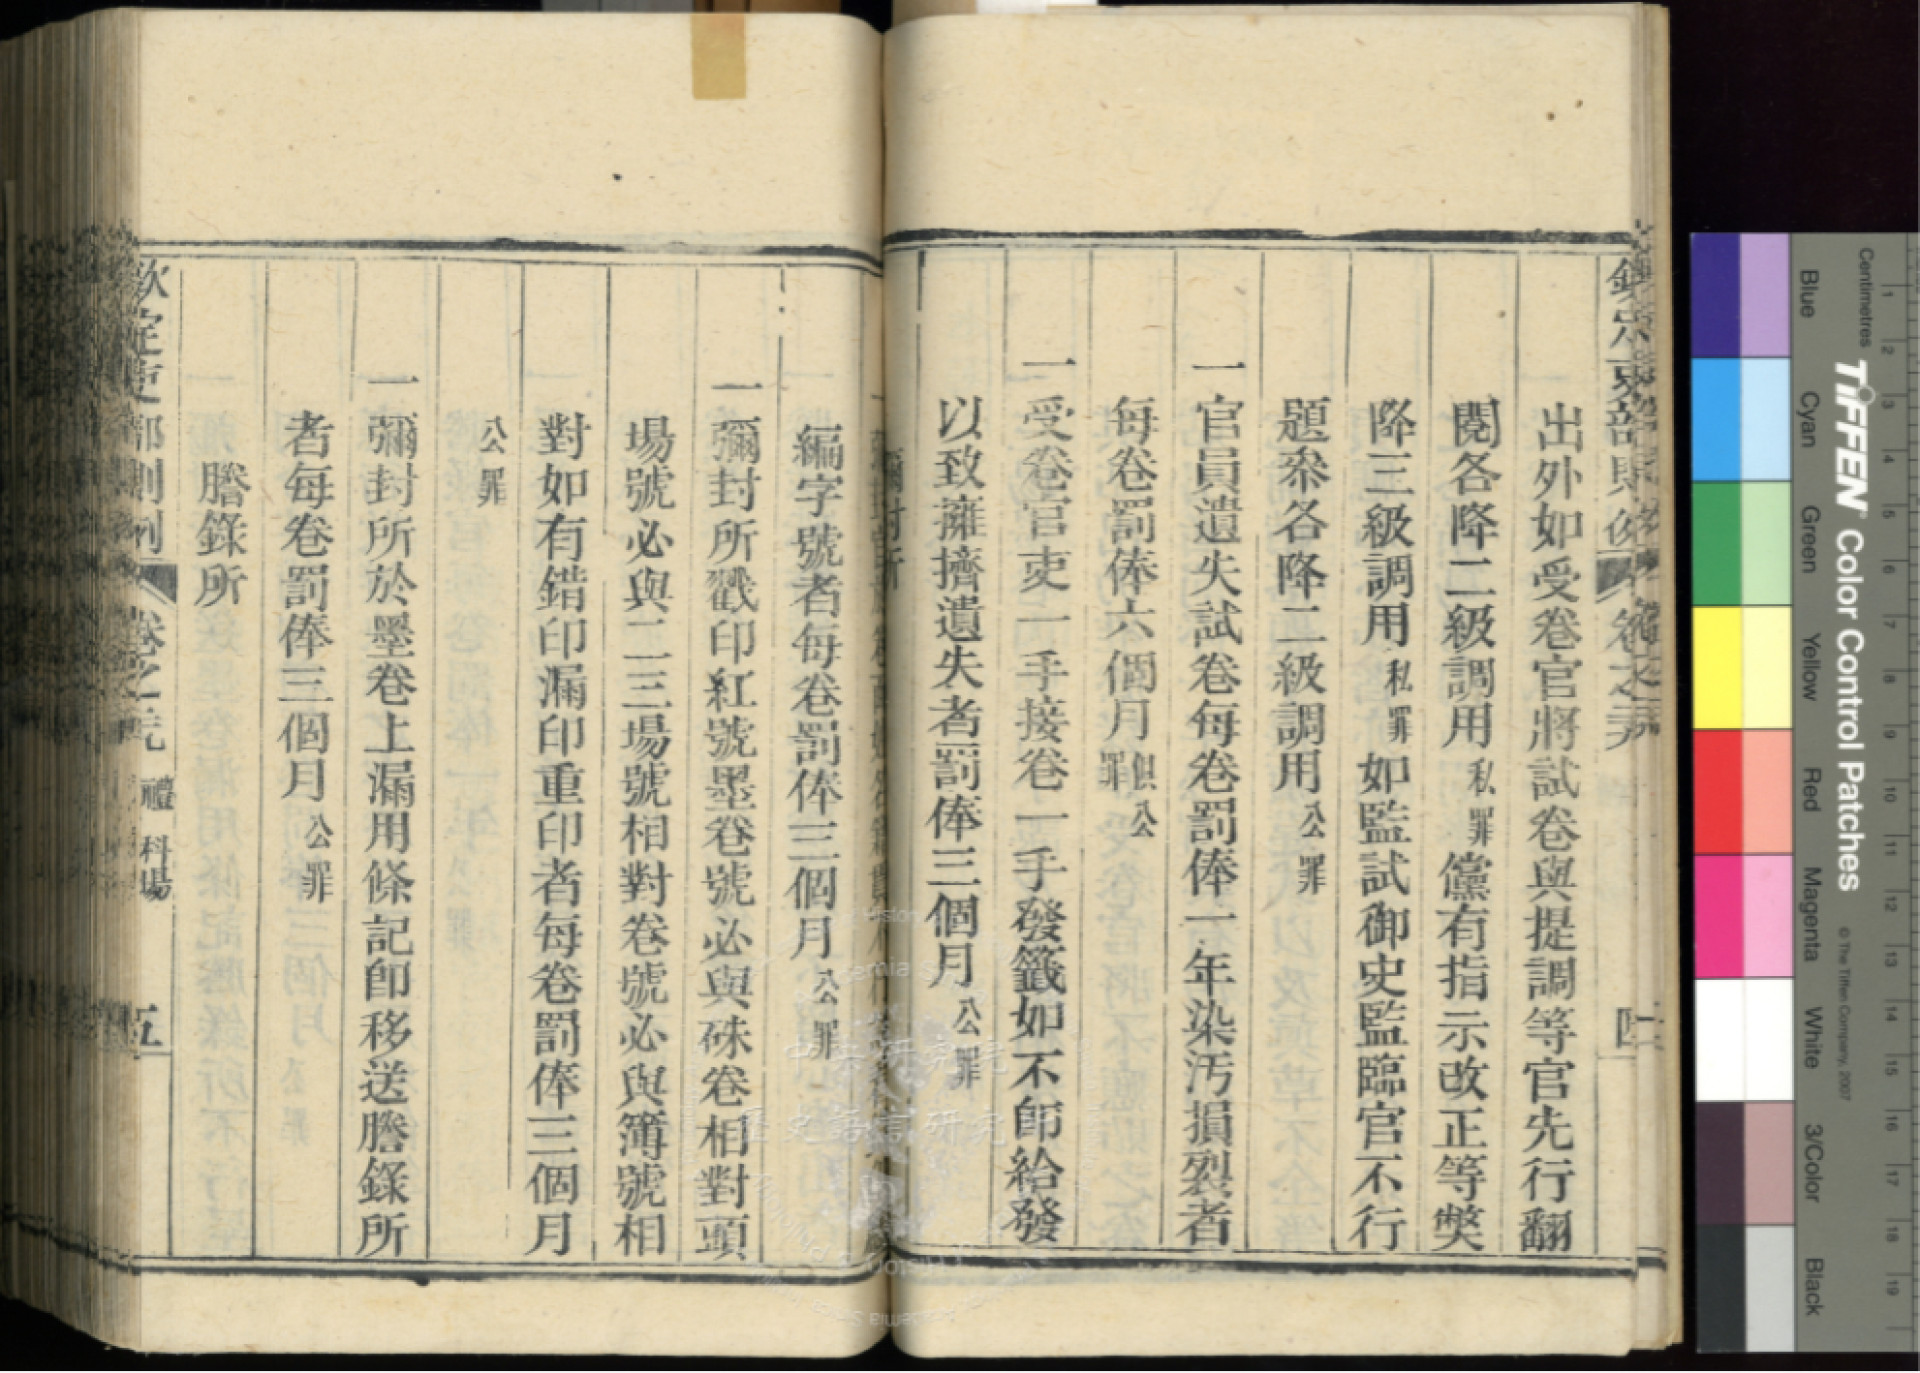 出外如受卷官將試卷與提調等官先行翻
閱各降二級調用私罪儻有指示改正等獘
降三級調用私罪如監試御史監臨官不行
題叅各降二級調用公罪
一官員遺失試卷每卷罰俸一年染汚損裂者
每卷罰俸六個月俱公罪
一受卷官吏一手接卷一手發籤如不卽給發
以致擁擠遺失者罰俸三個月公罪
彌封所
編字號者每卷罰俸三個月公罪
一彌封所戳印紅號墨卷號必與硃卷相對頭
場號必與二三場號相對卷號必與簿號相
對如有錯印漏印重印者每卷罰俸三個月
公罪
一彌封所於墨卷上漏用條記卽移送謄錄所
者每卷罰俸三個月公罪
謄錄所
欽定吏部則例 卷之 禮 科場 五
TIFFEN Color Control Patches
© The Tiffen Company, 2007
Centimetres
1 2 3 4 5 6 7 8 9 10 11 12 13 14 15 16 17 18 19
Blue
Cyan
Green
Yellow
Red
Magenta
White
3/Color
Black